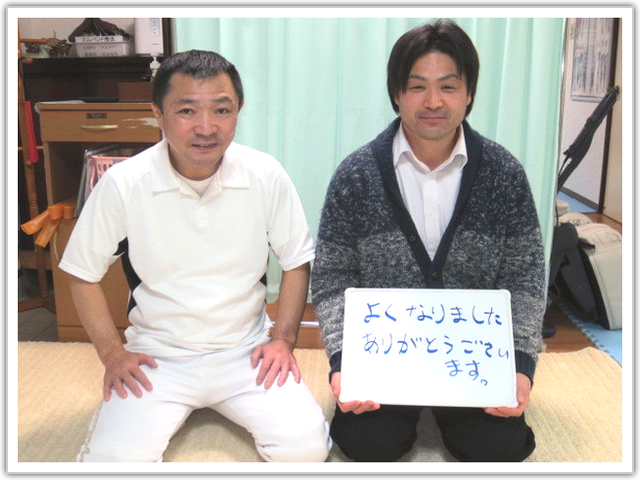 よくなりました
ありがとうござい
ます。